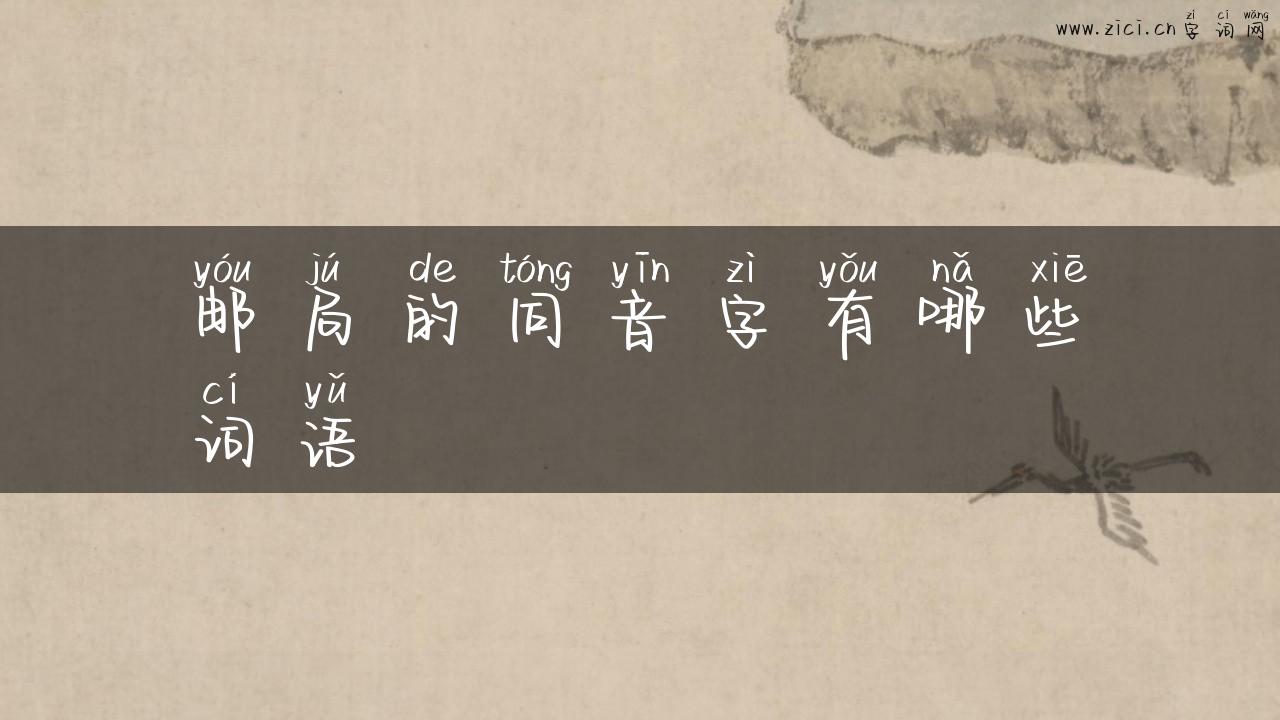 zì cí wǎng
www.zici.cn 字词网
yóu jú de tóng yīn zì yǒu nǎ xiē
邮局的同音字有哪些
cí yǔ
词语